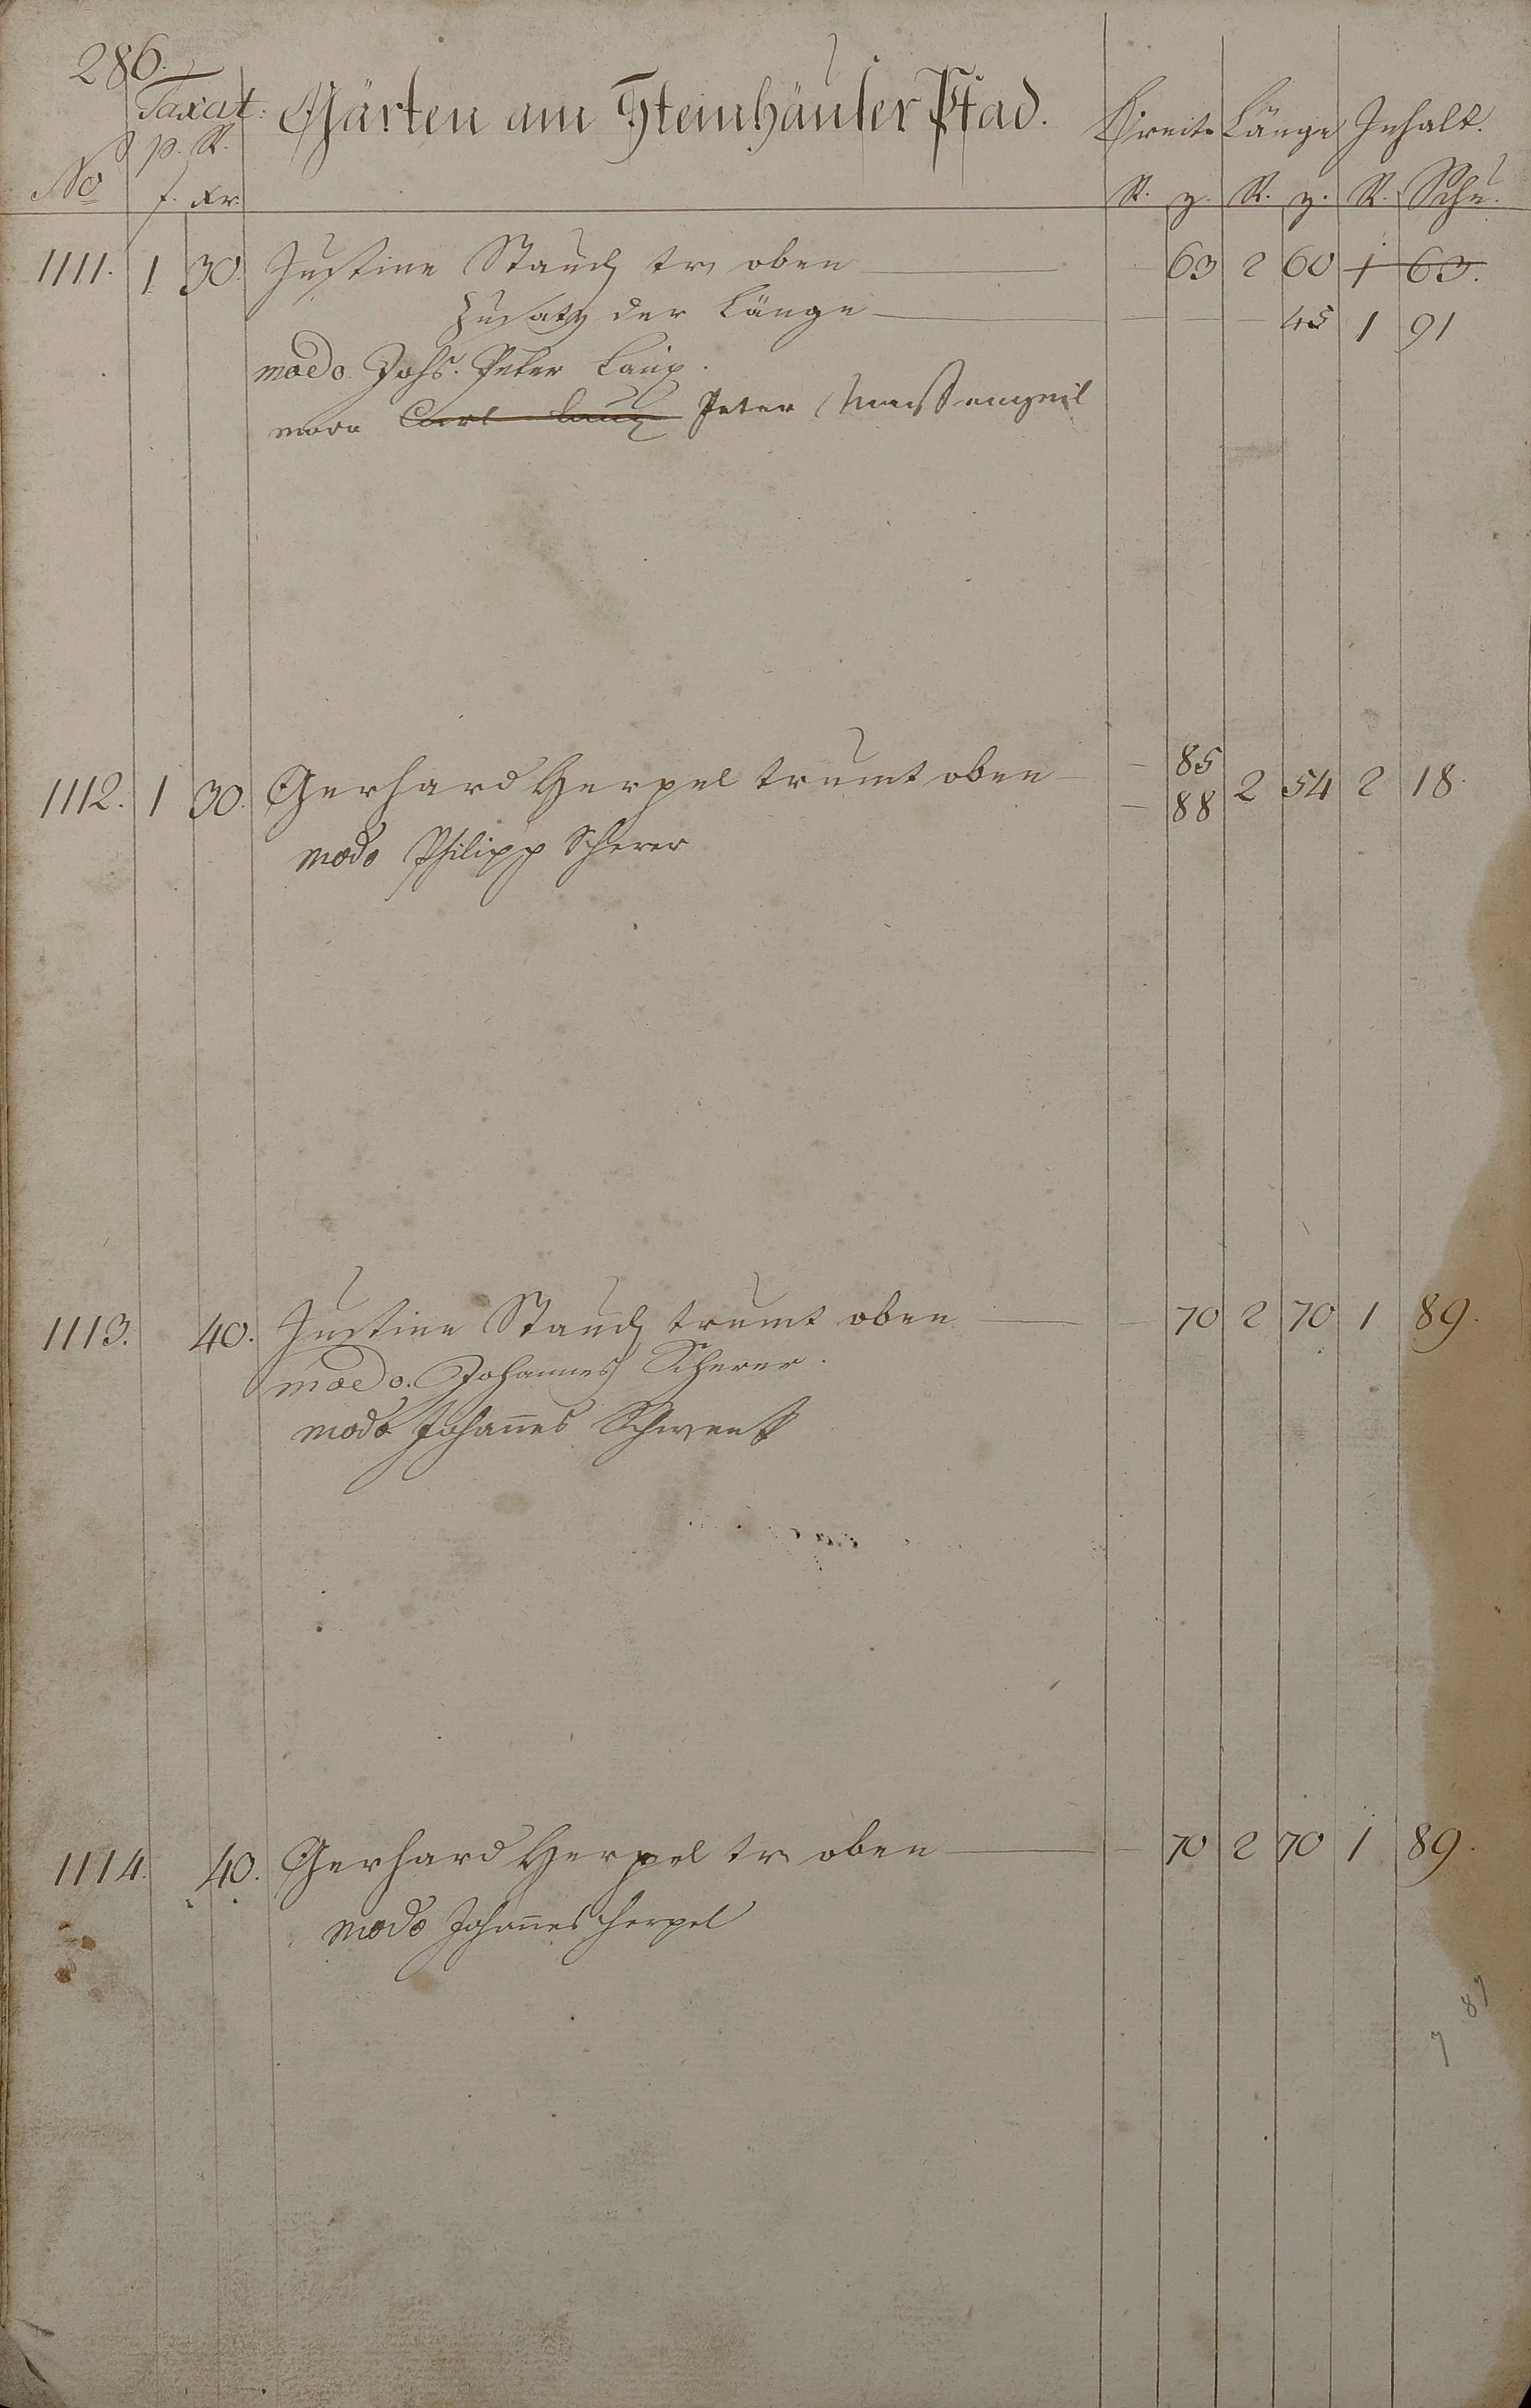 286.
Taxat: Gärten am Steinhäuser Pfad. Breite Länge Inhalt.
p. R.
No f. Xr. R. z. R. z. R. Schu.
1111. 1 30. Justine Stauch tr. oben — 63 2 60 1 63.
Zusatz der Länge — 45 1 91
modo Johs. Peter Laup.
modo Carl Peter Massengeil
1112. 1 30. Gerhard Herpel trumt oben — 85 2 54 2 18.
— 88
modo Philipp Scherer
1113. 40. Justine Stauch trumt oben — 70 2 70 1 89.
modo. Johannes Scherer.
modo Johannes Schwenk
1114. 40. Gerhard Herpel tr. oben — 70 2 70 1 89.
modo Johannes Herpel